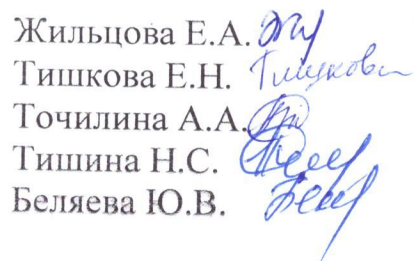 Жильцова Е.А.
Тишкова Е.Н. Тишкова
Точилина А.А.
Тишина Н.С.
Беляева Ю.В.